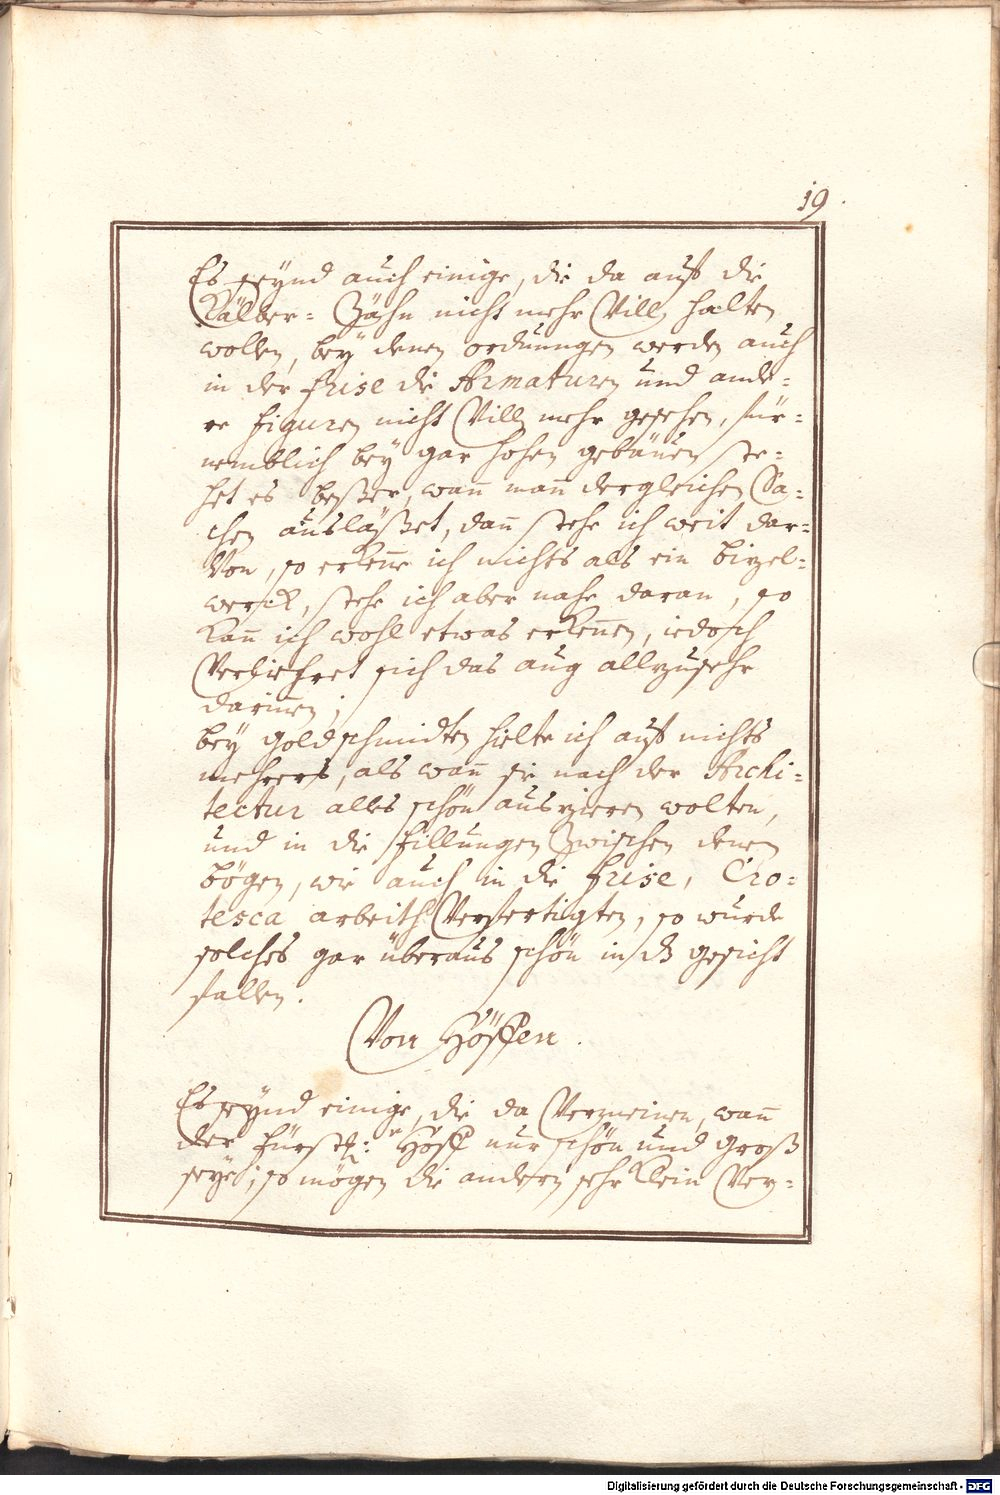 19.
Es seynd auch einige, die da auß die
Kälber= Zähn nicht mehr Vill halten
wollen, bey denen ordnungen werden auch
in der frise die Armaturen und ande=
re figuren nicht Vill mehr gesehen, für=
nemblich bey gar hohen gebäuen ste=
het es beßer, wann mann dergleichen Sa=
chen ausläßet, dann stehe ich weit dar=
Von, so erkenne ich nichts als ein bizel=
werck, stehe ich aber nahe daran, so
kann ich wohl etwas erkennen, iedoch
Verliehret sich das aug allzusehr
darinnen;
bey goldschmidten hielte ich auß nichts
mehrers, als wann sie nach der Archi=
tectur alles schön auszieren wolten,
und in die fillungen zwischen denen
bögen, wie auch in die frise, Cro=
tesca arbeith Verfertigten, so wurde
solches gar überaus schön in dß gesicht
fallen.
Von Höffen.
Es seynd einige, die da Vermeinen, wann
der fürstl: Hoff nur schön und groß
seye; so mögen die andern sehr klein Ver=
Digitalisierung gefördert durch die Deutsche Forschungsgemeinschaft - DFG